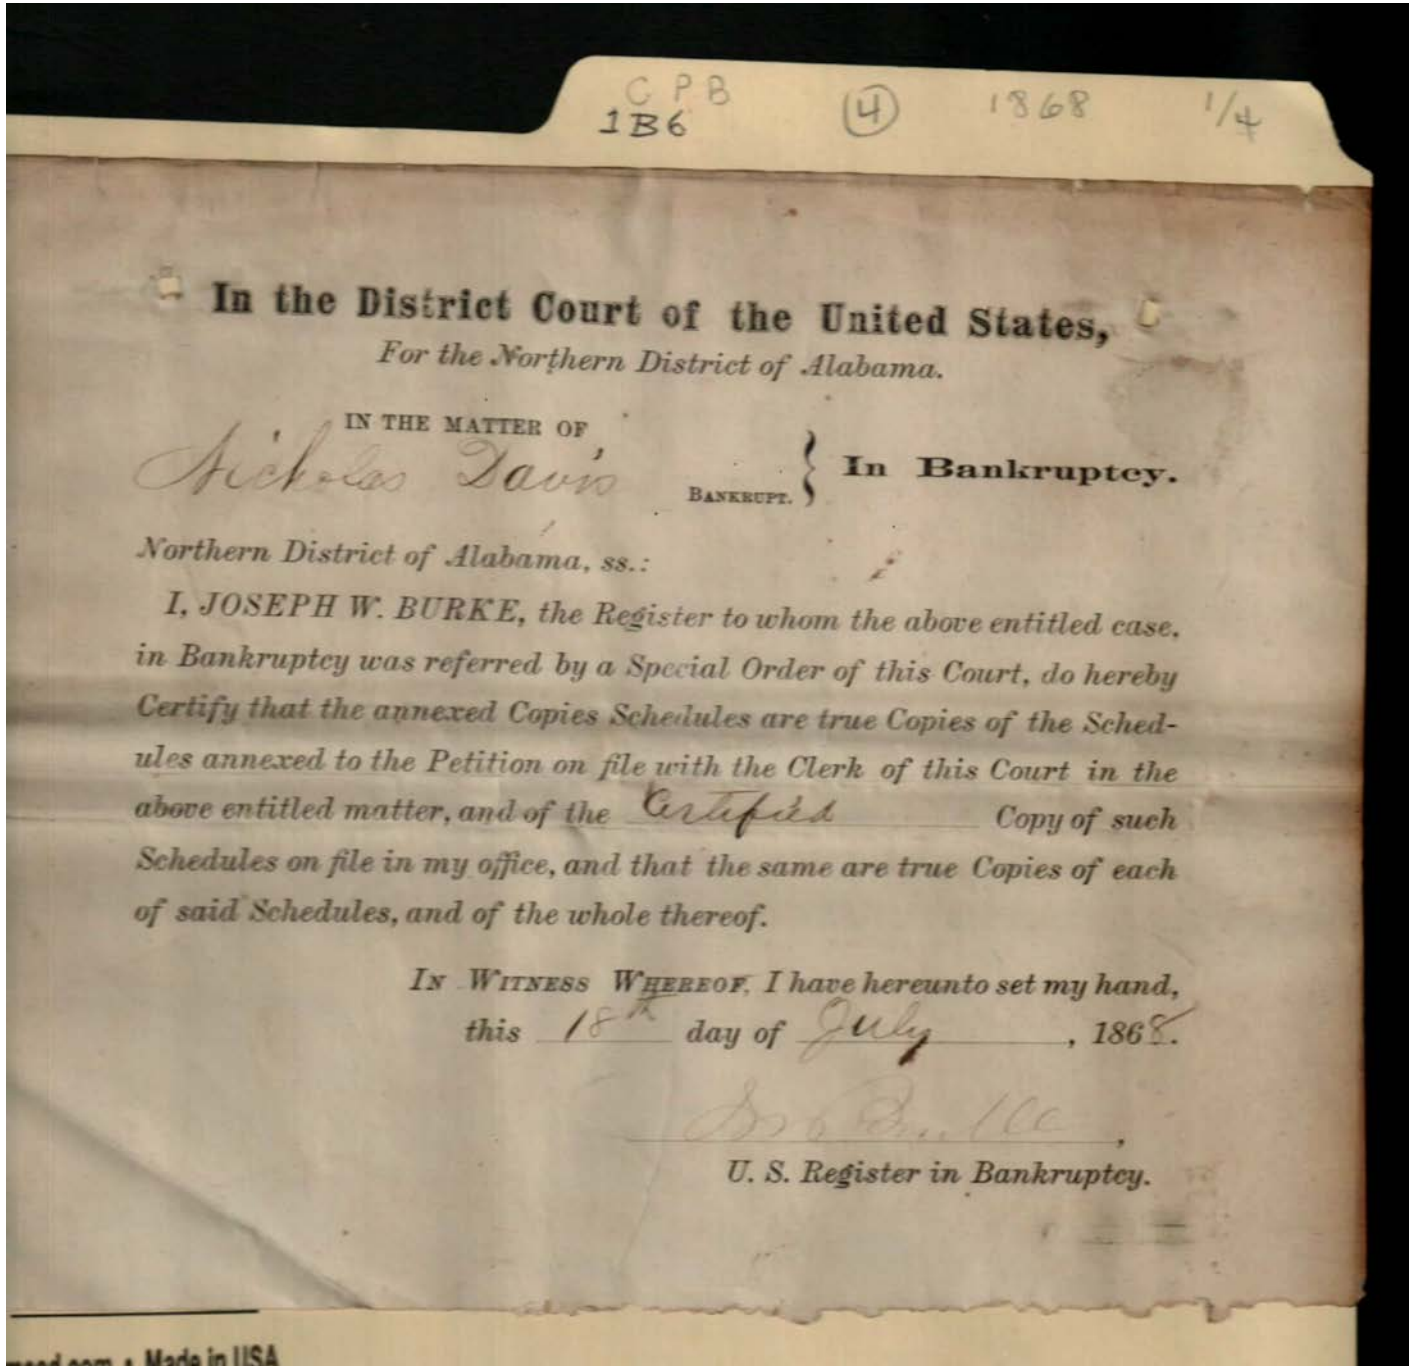 C P B 4 1868 1/4
1B6
In the District Court of the United States,
For the Northern District of Alabama.
IN THE MATTER OF
Nicholas Davis
BANKRUPT. } In Bankruptcy.
Northern District of Alabama, ss.:
I, JOSEPH W. BURKE, the Register to whom the above entitled case,
in Bankruptcy was referred by a Special Order of this Court, do hereby
Certify that the annexed Copies Schedules are true Copies of the Sched-
ules annexed to the Petition on file with the Clerk of this Court in the
above entitled matter, and of the Certified Copy of such
Schedules on file in my office, and that the same are true Copies of each
of said Schedules, and of the whole thereof.
IN WITNESS WHEREOF, I have hereunto set my hand,
this 18th day of July, 1868.
U. S. Register in Bankruptcy.
Made in USA